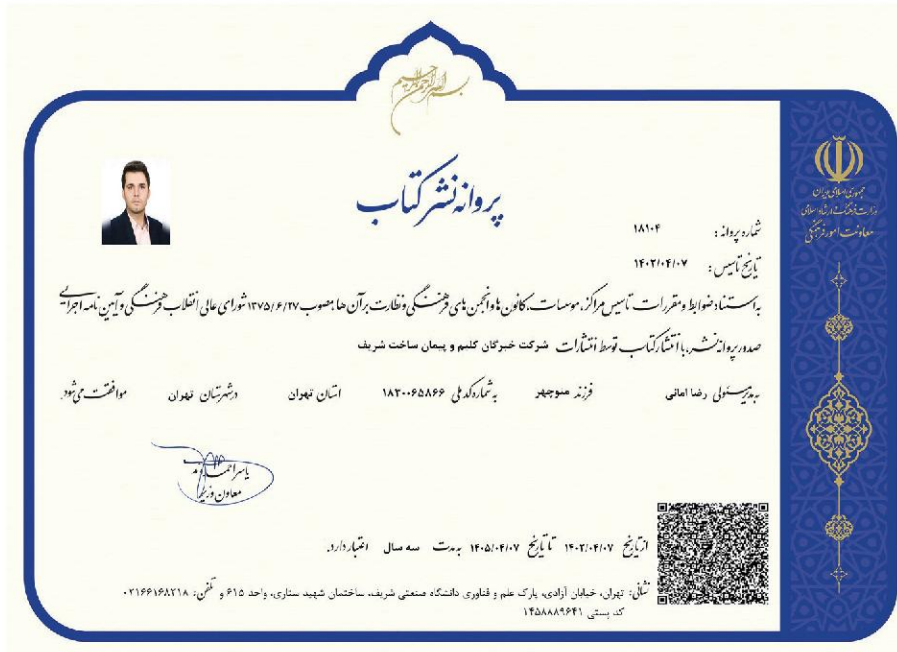 بسم الله الرحمن الرحیم
جمهوری اسلامی ایران
وزارت فرهنگ و ارشاد اسلامی
معاونت امور فرهنگی
پروانه نشر کتاب
شماره پروانه : ۱۸۱۰۴
تاریخ تاسیس : ۱۴۰۲/۰۴/۰۷
به استناد ضوابط و مقررات تاسیس مراکز، موسسات، کانون ها و انجمن های فرهنگی و نظارت بر آن ها مصوب ۱۳۷۵/۶/۲۷ شورای عالی انقلاب فرهنگی و آیین نامه اجرایی
صدور پروانه نشر، با انتشار کتاب توسط انتشارات شرکت خبرگان کلیم و پیمان ساخت شریف
به مدیر مسئولی رضا امانی فرزند منوچهر به شماره کد ملی ۱۸۳۰۰۶۵۸۶۶ استان تهران در شهرستان تهران موافقت می شود.
یاسر احمدوند
معاون وزیر
از تاریخ ۱۴۰۲/۰۴/۰۷ تا تاریخ ۱۴۰۵/۰۴/۰۷ به مدت سه سال اعتبار دارد.
نشانی: تهران، خیابان آزادی، پارک علم و فناوری دانشگاه صنعتی شریف، ساختمان شهید ستاری، واحد ۶۱۵ و تلفن: ۰۲۱۶۶۱۶۸۲۱۸
کد پستی ۱۴۵۸۸۸۹۶۴۱